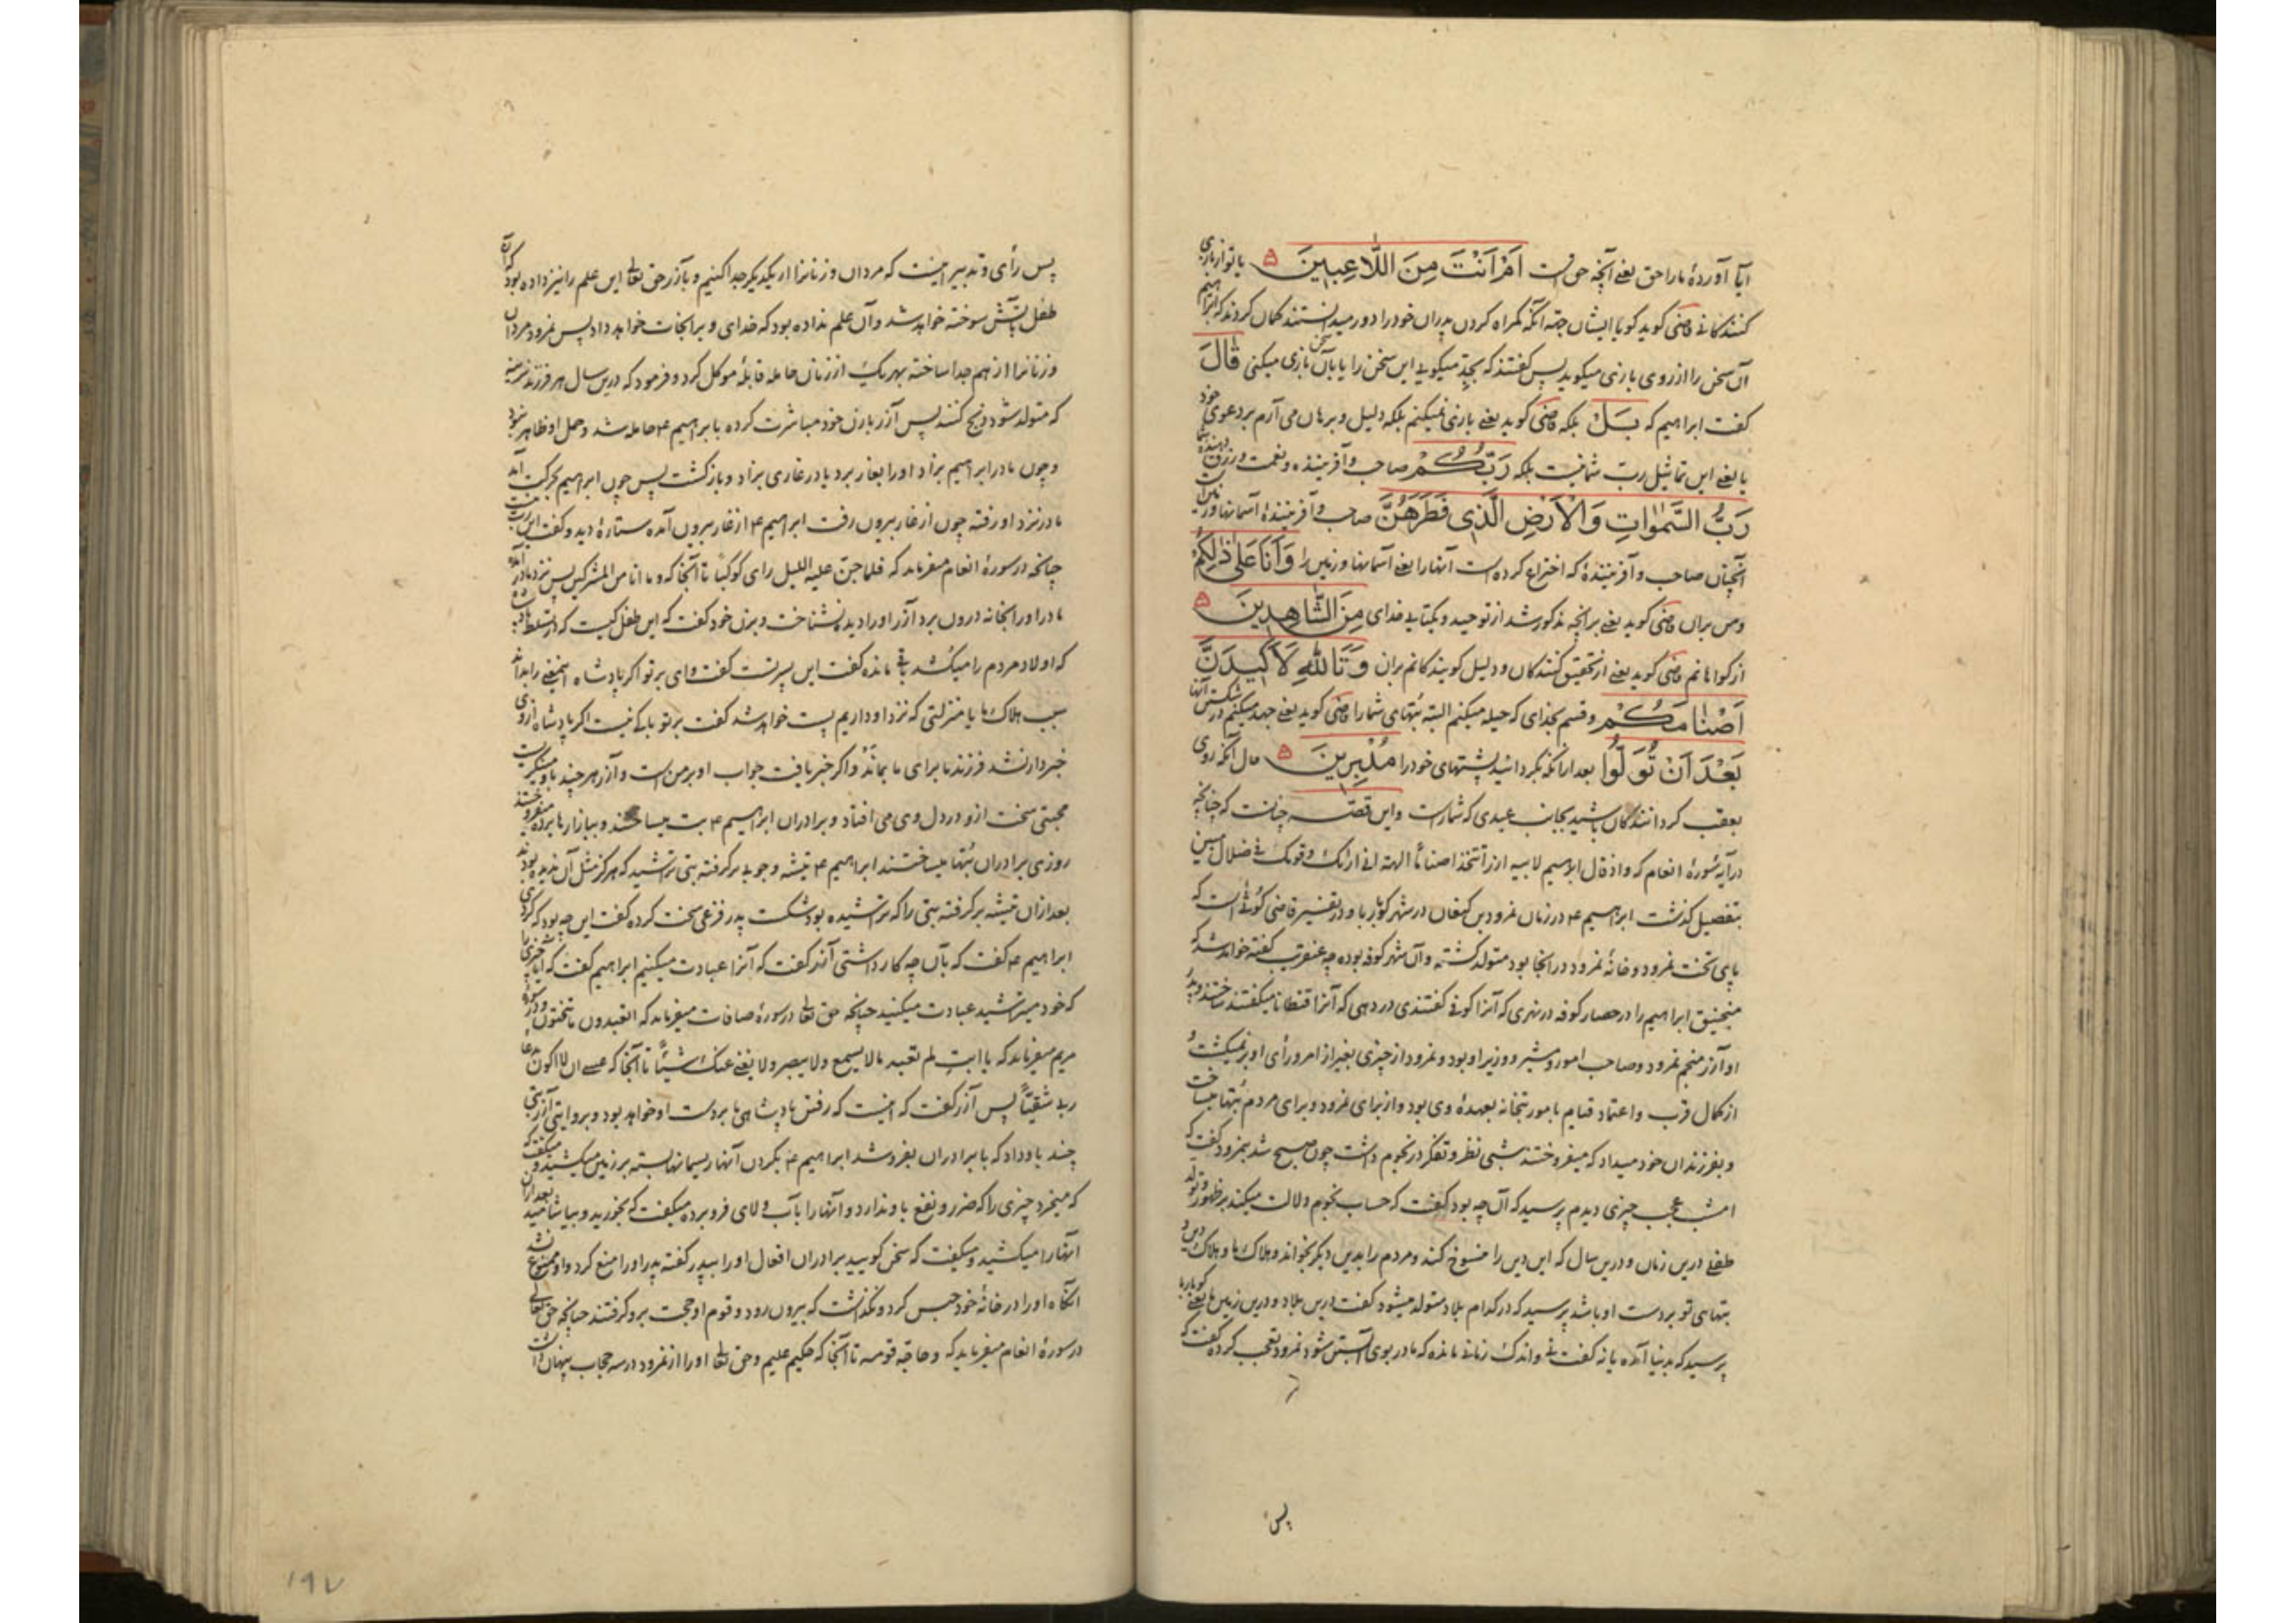 آیا آوردهٔ ما را حق یعنی آنچه حق است اَمْ اَنْتَ مِنَ اللَّاعِبِینَ یا تو از بازی
کنندکانی قاضی کوید کویا ایشان جهة آنکه کمراه کردن پدران خود را دور میدانستند کمان کردند که ابراهیم
آن سخن را از روی بازی میکوید پس کفتند که بجد میکویی این سخن را یا بآن سخن بازی میکنی قَالَ
کفت ابراهیم که بَلْ بلکه قاضی کوید یعنی بازی نمیکنم بلکه دلیل و برهان می آرم بر دعوی خود
یا یعنی این تماثیل رب شما نیست بلکه رَبُّكُمْ صاحب و آفریننده و نعمت و رزق دهنده شما
رَبُّ السَّمٰوَاتِ وَالْاَرْضِ الَّذِی فَطَرَهُنَّ صاحب و آفرینندهٔ آسمانها و زمین است
آنچنان صاحب و آفرینندهٔ که اختراع کرده است آنها را یعنی آسمانها و زمین را وَاَنَا عَلٰی ذٰلِكُمْ
و من بران قاضی کوید یعنی بر آنچه مذکور شد از توحید و یکتایی خدای مِنَ الشَّاهِدِینَ
از کواهانم قاضی کوید یعنی از تحقیق کنندکان و دلیل کویندکانم بران وَتَاللّٰهِ لَاَكِیدَنَّ
اَصْنَامَكُمْ و قسم بخدای که حیله میکنم البته بتهای شما را قاضی کوید یعنی جهد میکنم در شکستن آنها
بَعْدَ اَنْ تُوَلُّوا بعد از آنکه بکردانید پشتهای خود را مُدْبِرِینَ حال آنکه روی
بعقب کردانندکان باشید بجانب عیدی که شماراست و این قصه چنانست که چنانچه
در آیهٔ سورهٔ انعام که و اذ قال ابراهیم لابیه ازر اتتخذ اصناماً الهة انی اراک و قومک فی ضلال مبین
بتفصیل کذشت ابراهیم ۴ در زمان نمرود بن کنعان در شهر کوبار با و در تفسیر قاضی کوثی است که
پای تخت نمرود و خانهٔ نمرود در آنجا بود متولد کشته و آن شهر کوفه بوده چه عنقریب کفته خواهد شد که
منجنیق ابراهیم را در حصار کوفه در نهری که آنرا کوثی کفتندی در دهی که آنرا قنطانا میکفتند ساختند و پدر
او آزر منجم نمرود و صاحب امور و مشیر و وزیر او بود و نمرود از چیزی بغیر از امر و رأی او بر نمیکشت و
از کمال قرب و اعتماد قیام بامور بتخانه بعهدهٔ وی بود و از برای نمرود و برای مردم بتها میساخت
و بفرزندان خود میداد که میفروختند شبی نظر و تفکر در نجوم داشت چون صبح شد بنمرود کفت که
امشب عجب چیزی دیدم پرسید که آن چه بود کفت که حساب نجوم دلالت میکند بر ظهور و تولد
طفلی درین زمان و درین سال که این دین را منسوخ کند و مردم را بدین دیکر بخواند و هلاک ما و هلاک دین و
بتهای تو بر دست او باشد پرسید که در کدام بلاد متولد میشود کفت درین بلاد و درین زمین ها یعنی کوبار با
پرسید که بدنیا آمده یا نه کفت نی و اندک زمانی مانده که مادر بوی آبستن شود نمرود تعجب کرده کفت که
پس
پس رأی و تدبیر اینست که مردان و زنانرا از یکدیکر جدا کنیم و بآزر حق تعالی این علم را نیز داده بود که آن
طفل بآتش سوخته خواهد شد و آن علم نداده بود که خدای ویرا نجات خواهد داد پس نمرود مردان
و زنانرا از هم جدا ساخته بهر یک از زنان حامله قابلهٔ موکل کرد و فرمود که درین سال هر فرزند نرینه
که متولد شود ذبح کنند پس آزر با زن خود مباشرت کرده بابراهیم ۴ حامله شد و حمل او ظاهر نبود
و چون مادر ابراهیم بزاد او را بغار برد یا در غاری بزاد و بازکشت پس چون ابراهیم بحرکت آمد
مادر نزد او رفته چون از غار بیرون رفت ابراهیم ۴ از غار بیرون آمده ستارهٔ دید و کفت این رب منست
چنانچه در سورهٔ انعام میفرماید که فلما جن علیه اللیل رای کوکبا تا آنجا که و ما انا من المشرکین پس نزد مادر آمده
مادر او را بخانه درون برد آزر او را دید و نشناخت و بزن خود کفت که این طفل کیست که در سلطنت پادشاه
که اولاد مردم را میکشد باقی مانده کفت این پسر تست کفت وای بر تو اکر پادشاه اینمعنی را بداند
سبب هلاک ما یا منزلتی که نزد او داریم پست خواهد شد کفت بر تو باکی نیست اکر پادشاه از وی
خبردار نشد فرزند ما برای ما بماند و اکر خبر یافت جواب او بر من است و آزر هر چند باو مینکریست
محبتی سخت از و در دل وی می افتاد و برادران ابراهیم ۴ بت میساختند و ببازارها برده میفروختند
روزی برادران بتها میساختند ابراهیم ۴ تیشه و چوبی برکرفته بتی تراشید که هرکز مثل آن ندیده بودند
بعد ازان تیشه برکرفته بتی را که تراشیده بود شکست پدر فزعی سخت کرده کفت این چه بود که کردی
ابراهیم ۴ کفت که بآن چه کار داشتی آزر کفت که آنرا عبادت میکنیم ابراهیم کفت که آیا چیزی را
که خود میتراشید عبادت میکنید چنانچه حق تعالی در سورهٔ صافات میفرماید که اتعبدون ما تنحتون و در سورهٔ
مریم میفرماید که یا ابت لم تعبد ما لا یسمع و لا یبصر و لا یغنی عنک شیئاً تا آنجا که عسی ان لا اکون بدعا
ربی شقیاً پس آزر کفت که اینست که رفتن پادشاهی ما بر دست او خواهد بود و بروایتی آزر بتی
چند باو داد که با برادران بفروشد ابراهیم ۴ بکردن آنها ریسمانها بسته بر زمین میکشید و میکفت که
که میخرد چیزی را که ضرر و نفع باو ندارد و آنها را بآب و لای فرو برده میکفت که بخورید و بیاشامید بعد ازان
آنها را میکشید و میکفت که سخن کویید برادران افعال او را بپدر کفته پدر او را منع کرد و او ممنوع نشد
آنکاه او را در خانهٔ خود حبس کرد و نکذاشت که بیرون رود و قوم او حجت برو کرفتند چنانچه حق تعالی
در سورهٔ انعام میفرماید که و حاجه قومه تا آنجا که حکیم علیم و حق تعالی او را از نمرود در سه حجاب پنهان داشت
۱۹۷